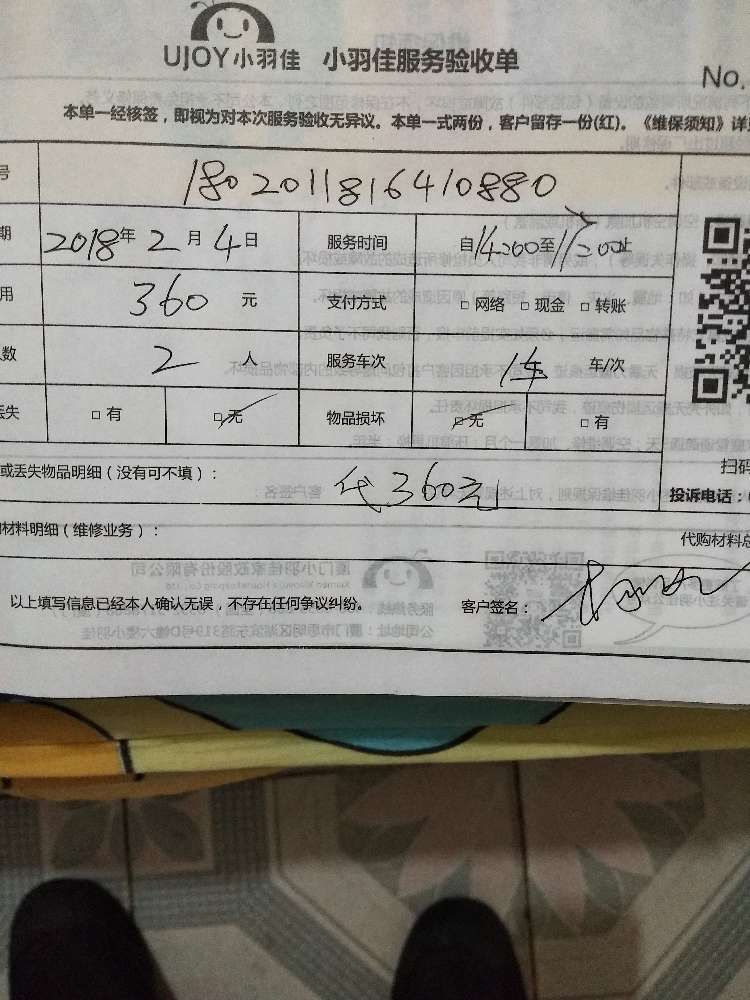 UJOY小羽佳 小羽佳服务验收单
No.
本单一经核签，即视为对本次服务验收无异议。本单一式两份，客户留存一份(红)。《维保须知》详
号 180201181641088O
期 2018年2月4日 服务时间 自14:00至 :00止
用 360 元 支付方式 □网络 □现金 □转账
数 2 人 服务车次 1车 车/次
丢失 □有 □无 物品损坏 □无 □有
或丢失物品明细（没有可不填）： 代360元
扫码
投诉电话：
材料明细（维修业务）： 代购材料总
以上填写信息已经本人确认无误，不存在任何争议纠纷。 客户签名：